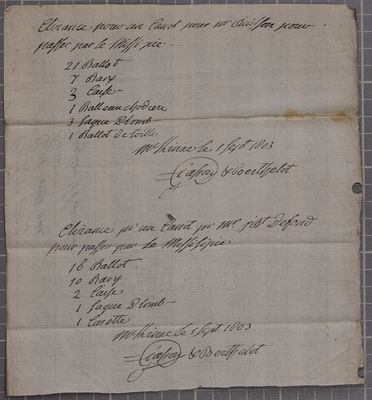 Clirance pour un Canot pour Mr Buisson pour
passer par le Messi pie
21 Ballot
7 Bary
3 Caise
1 Balleau
3 Saque Plomb
1 Ballot de toille
McKinac le 1 Sept 1803
& Berthelot
Clirance pr un Canot pr Mr
pour passer par Le Messisipie
16 Ballot
10 Bary
2 Caise
1 Saque Plomb
1 Casette
McKinac le 1 Sept 1803
& Berthelot